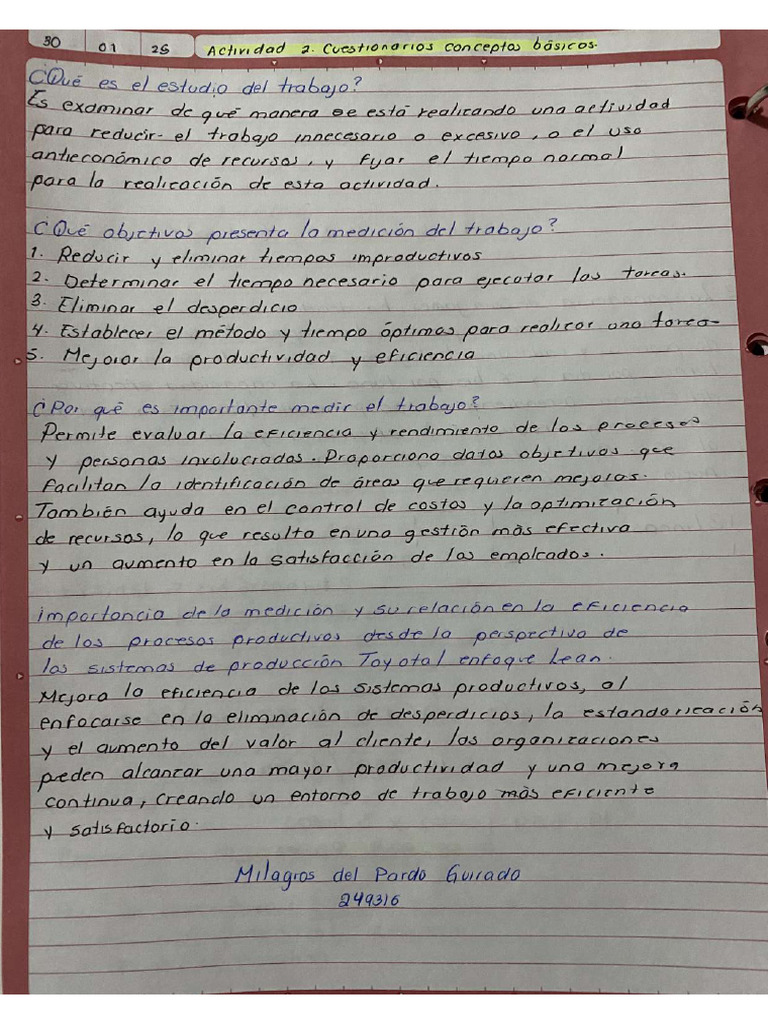 30 01 25 Actividad 2. Cuestionarios conceptos básicos.
¿Qué es el estudio del trabajo?
Es examinar de qué manera se está realizando una actividad
para reducir el trabajo innecesario o excesivo, o el uso
antieconómico de recursos, y fijar el tiempo normal
para la realización de esta actividad.
¿Qué objetivos presenta la medición del trabajo?
1. Reducir y eliminar tiempos improductivos
2. Determinar el tiempo necesario para ejecutar las tareas.
3. Eliminar el desperdicio
4. Establecer el método y tiempo óptimos para realizar una tarea
5. Mejorar la productividad y eficiencia
¿Por qué es importante medir el trabajo?
Permite evaluar la eficiencia y rendimiento de los procesos
y personas involucradas. Proporciona datos objetivos que
facilitan la identificación de áreas que requieren mejoras.
También ayuda en el control de costos y la optimización
de recursos, lo que resulta en una gestión más efectiva
y un aumento en la satisfacción de los empleados.
importancia de la medición y su relación en la eficiencia
de los procesos productivos desde la perspectiva de
los sistemas de producción Toyota/ enfoque Lean.
Mejora la eficiencia de los sistemas productivos, al
enfocarse en la eliminación de desperdicios, la estandarización
y el aumento del valor al cliente, las organizaciones
pueden alcanzar una mayor productividad y una mejora
continua, creando un entorno de trabajo más eficiente
y satisfactorio.
Milagros del Pardo Guirado
249316